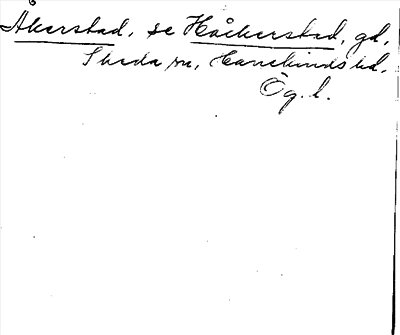 Åkerstad, se Håckerstad, gd,
Skeda sn, Hanekinds hd,
Ög. l.